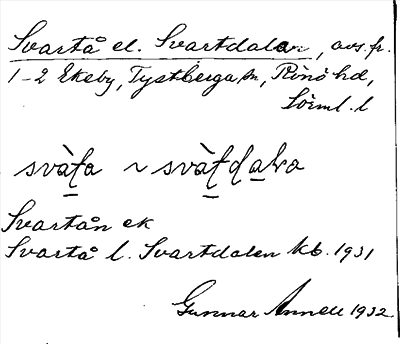 Svartå el. Svartdalen, avs. fr.
1-2 Ekeby, Tystberga sn, Rönö hd,
Sörml. l
svàṯa ~ svàṯḍaḻva
Svartån ek
Svartå l. Svartdalen Kb. 1931
Gunnar Annell 1932